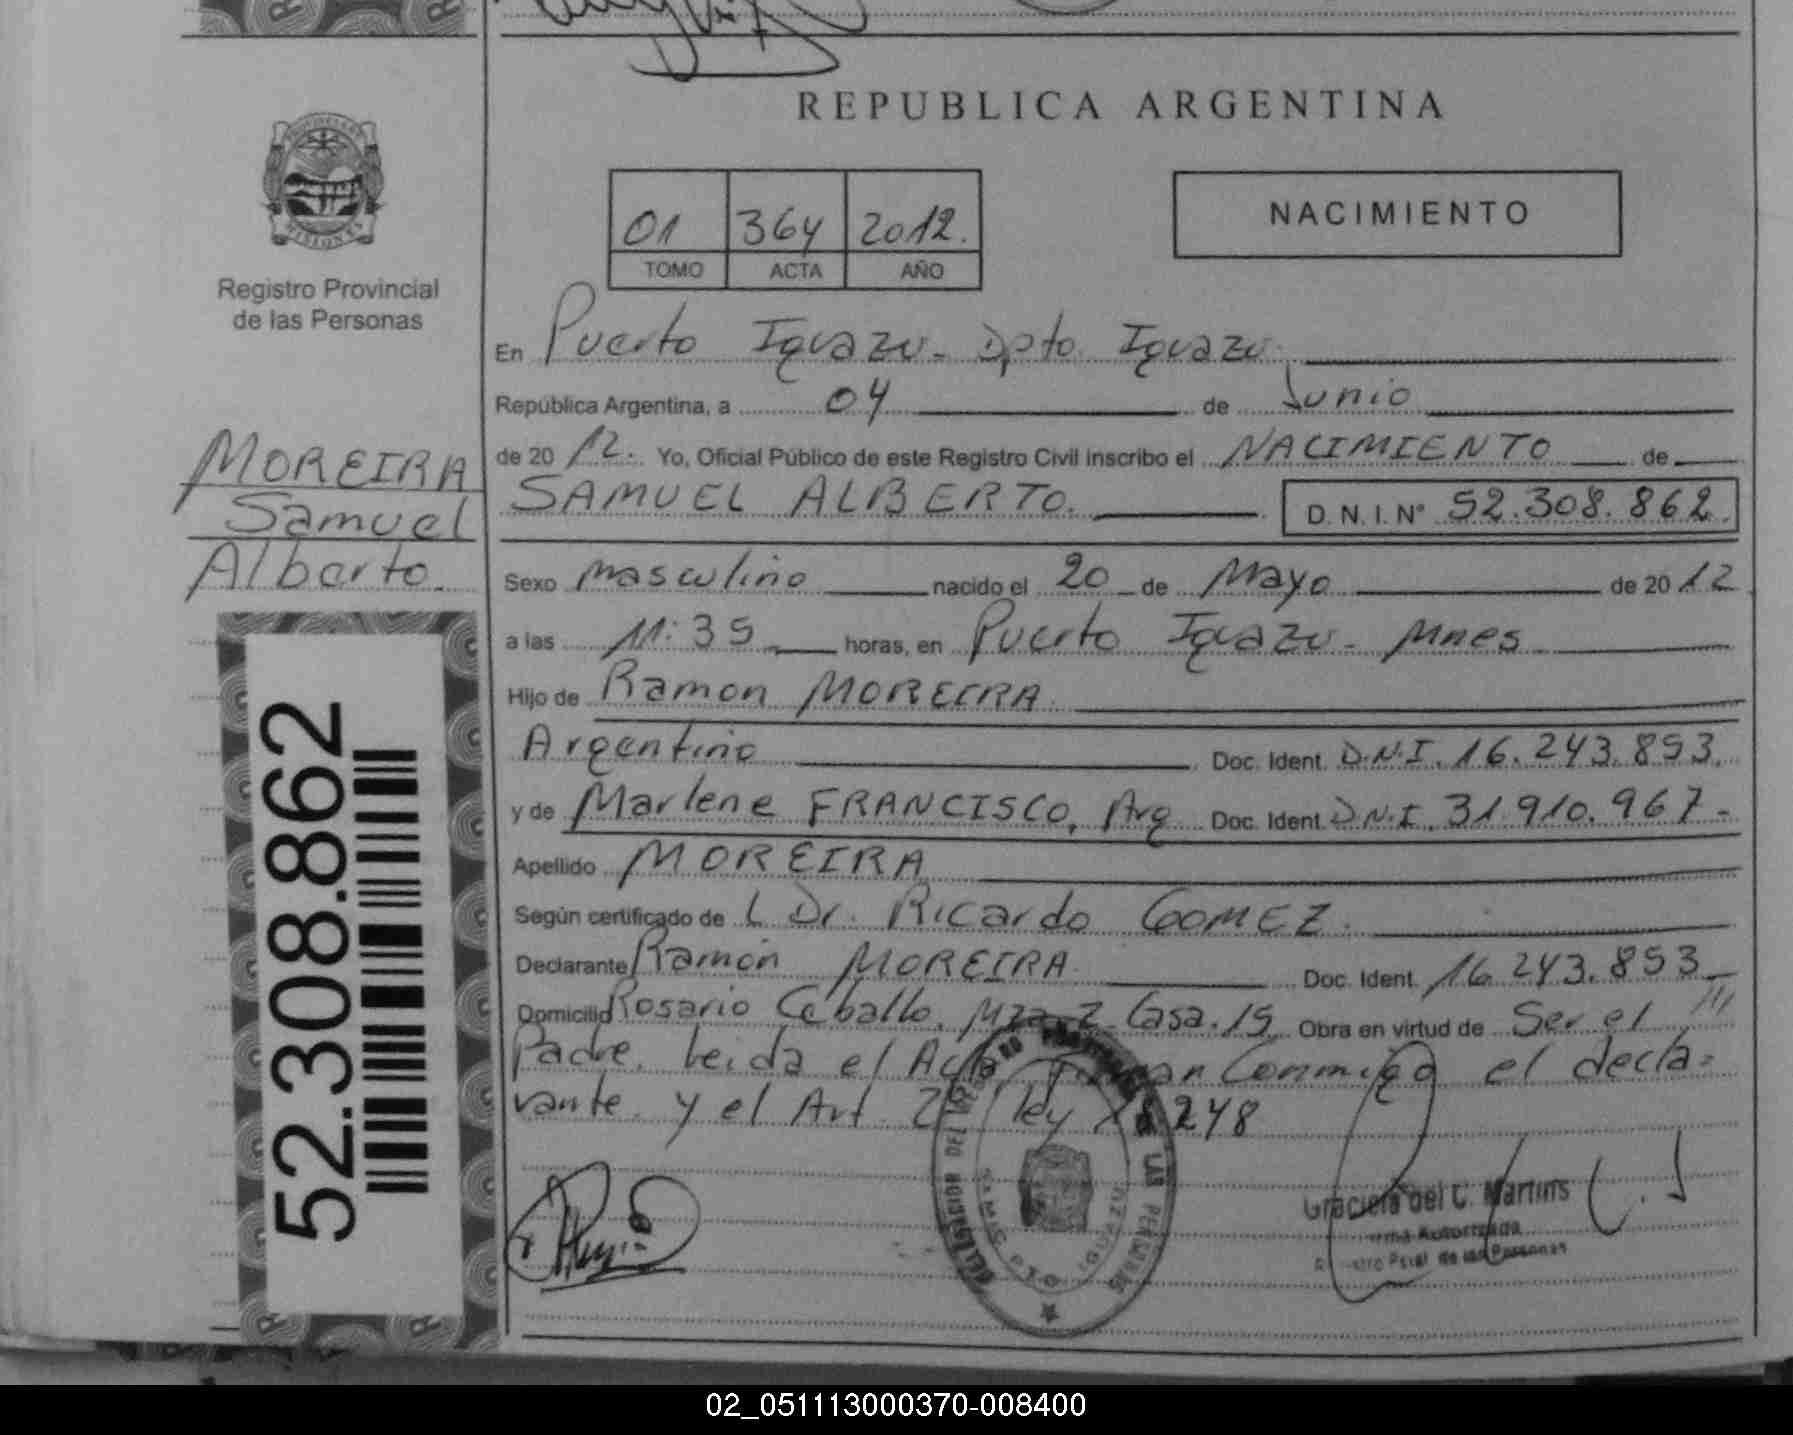 REPUBLICA ARGENTINA
PROVINCIA DE
MISIONES
Registro Provincial
de las Personas
01 364 2012.
TOMO ACTA AÑO
NACIMIENTO
En Puerto Iguazu - Dpto. Iguazu
República Argentina, a 04 de Junio
de 20 12. Yo, Oficial Público de este Registro Civil inscribo el NACIMIENTO de
SAMUEL ALBERTO. D. N. I. N° 52.308.862.
MOREIRA
Samuel
Alberto.
Sexo masculino nacido el 20 de Mayo de 20 12
a las 11:35 horas, en Puerto Iguazu - Mnes
Hijo de Ramon MOREIRA.
Argentino Doc. Ident. D.N.I. 16.243.853.
y de Marlene FRANCISCO, Arg Doc. Ident. D.N.I. 31.910.967-
Apellido MOREIRA
Según certificado de L Dr. Ricardo GOMEZ.
Declarante Ramón MOREIRA Doc. Ident. 16.243.853-
Domicilio Rosario Caballo, Mza-2 Casa.15. Obra en virtud de Ser el ///
Padre. Leida el Acta Firman Conmigo el decla=
rante y el Art. Ley 18248
52.308.862
DELEGACION DEL REGISTRO PROVINCIAL DE LAS PERSONAS
DTO. IGUAZU
Graciela del C. Martins
Firma Autorizada
Registro Pcial de las Personas
02_051113000370-008400